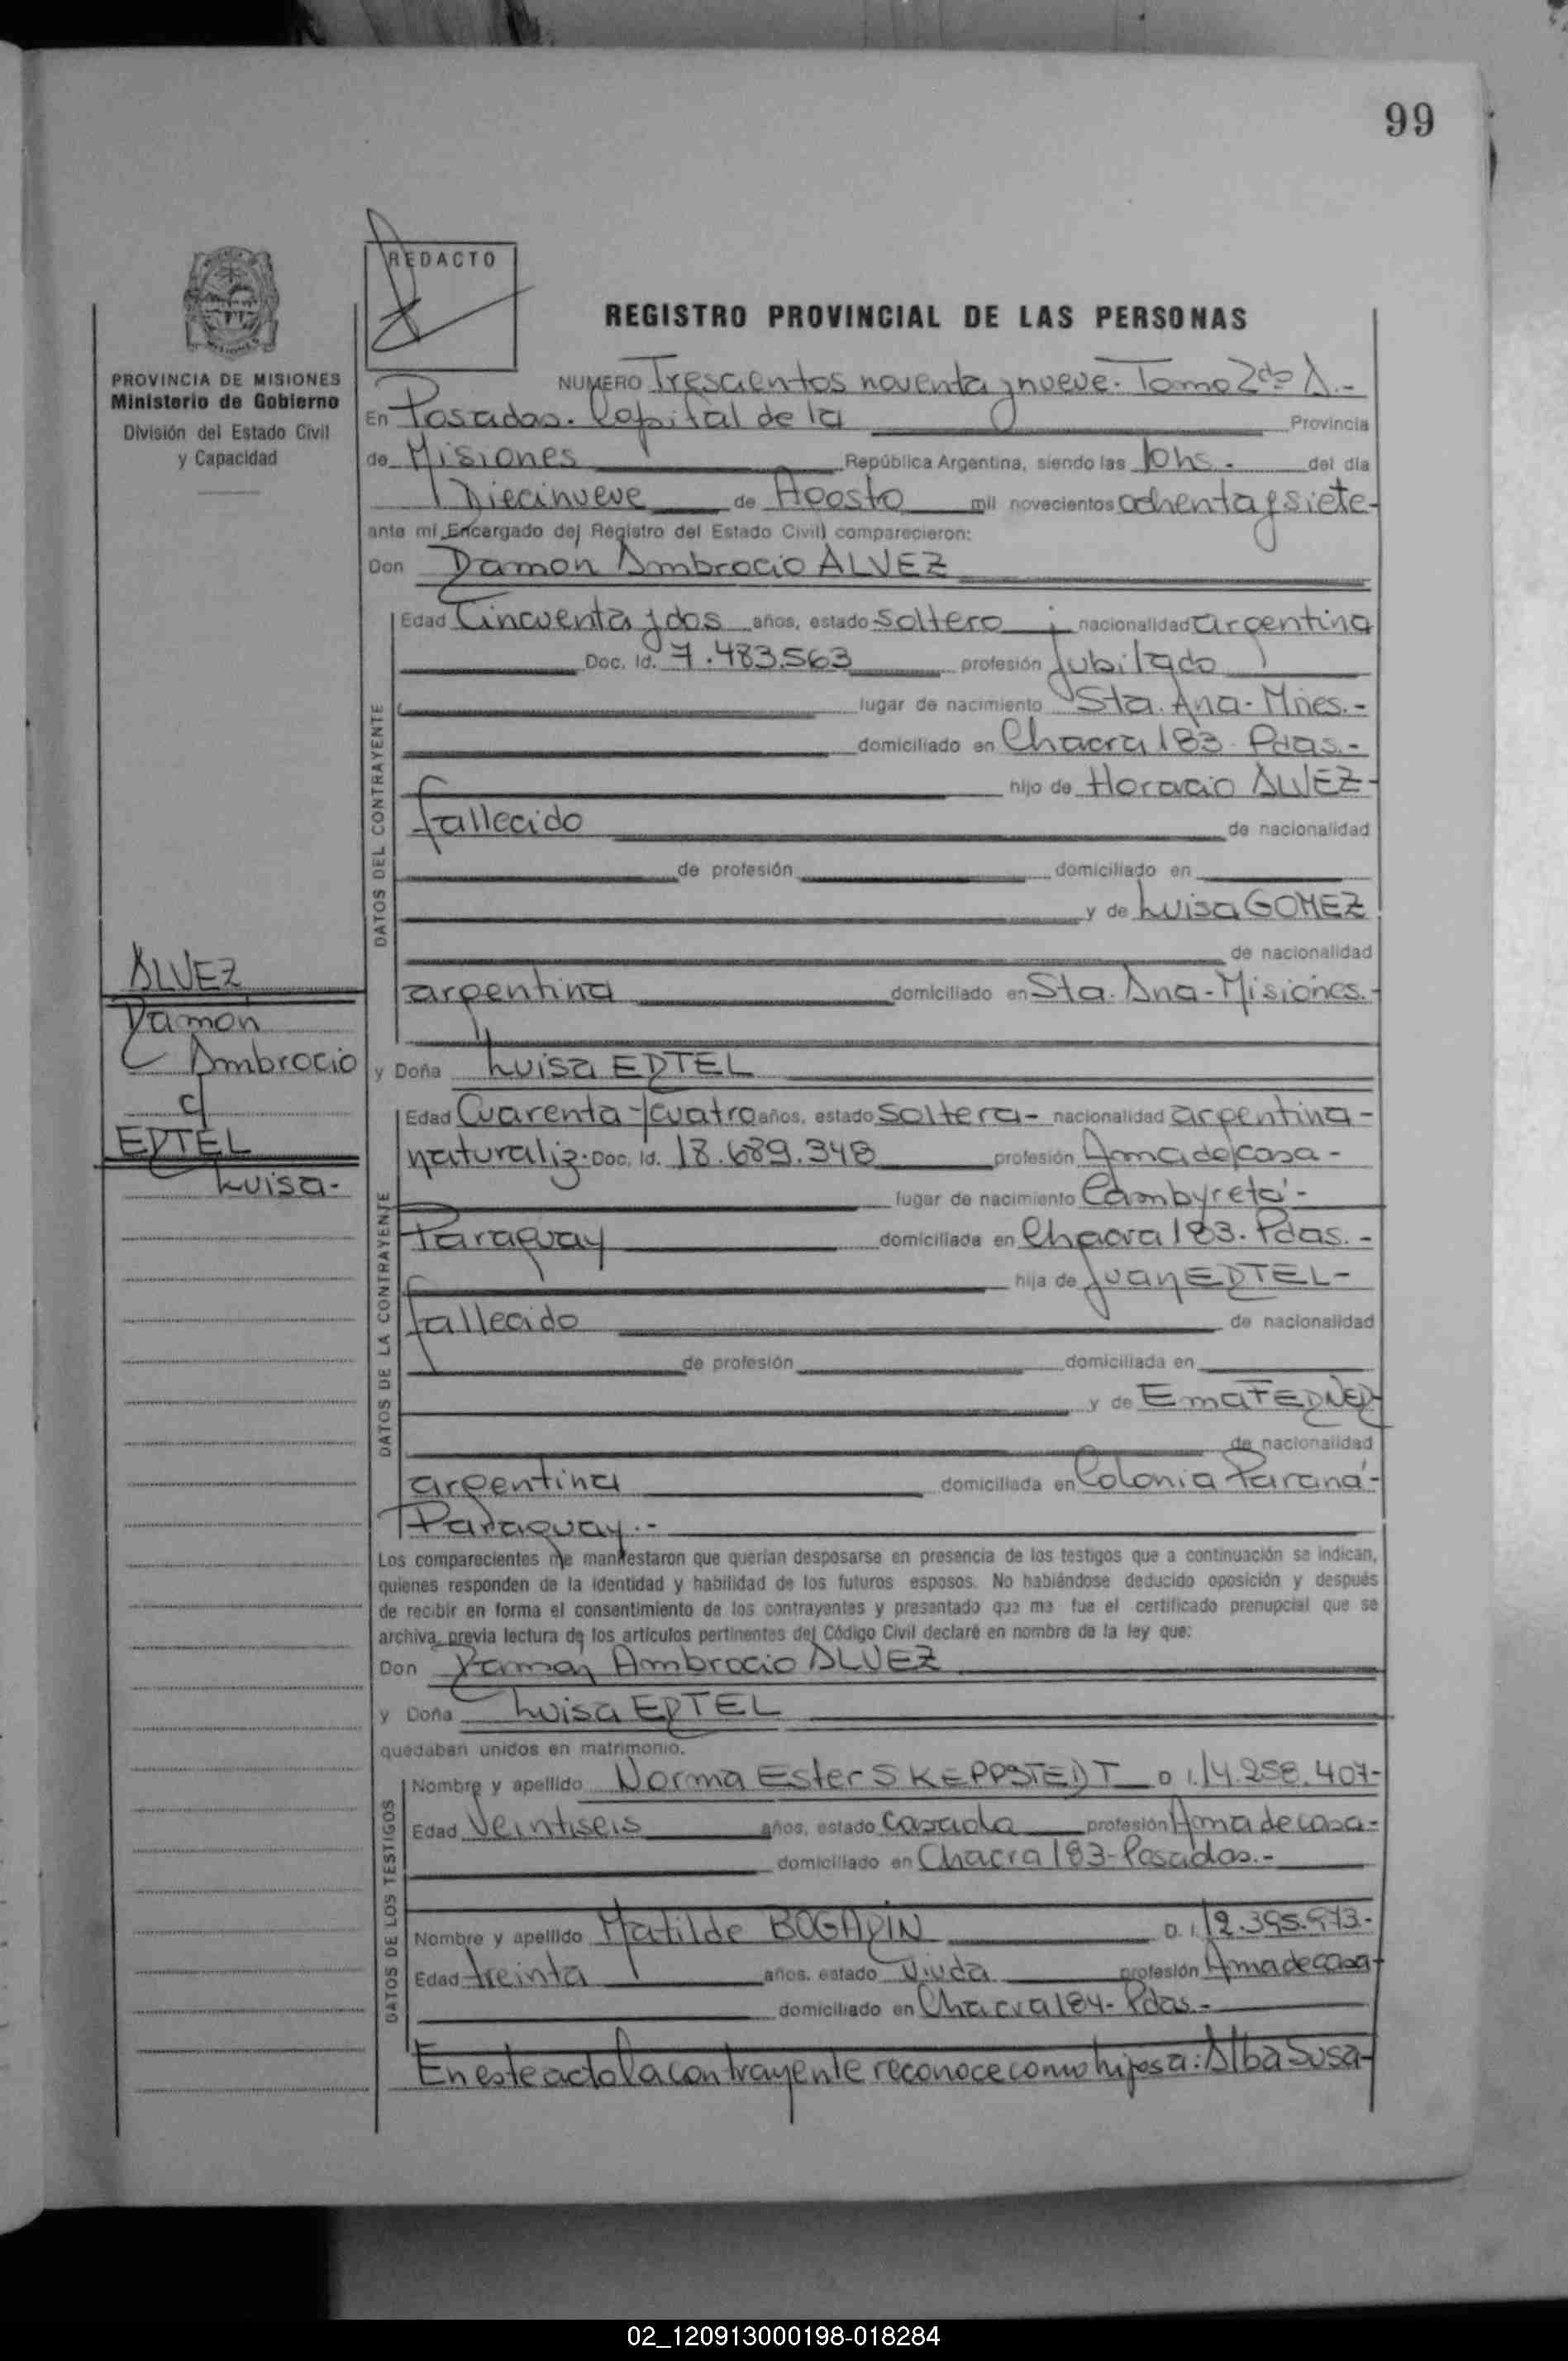 99
REDACTO
REGISTRO PROVINCIAL DE LAS PERSONAS
PROVINCIA DE MISIONES
Ministerio de Gobierno
División del Estado Civil
y Capacidad
NUMERO Trescientos noventa y nueve. Tomo 2do A.-
En Posadas. Capital de la Provincia
de Misiones República Argentina, siendo las 10hs. del día
Diecinueve de Agosto mil novecientos ochenta y siete-
ante mi Encargado del Registro del Estado Civil) comparecieron:
Don Ramón Ambrocio ALVEZ
DATOS DEL CONTRAYENTE
Edad Cincuenta y dos años, estado soltero nacionalidad argentina
Doc. Id. 7.483.563 profesión Jubilado
lugar de nacimiento Sta. Ana- Mnes.-
domiciliado en Chacra 183- Pdas.-
hijo de Horacio ALVEZ-
fallecido de nacionalidad
de profesión domiciliado en
y de Luisa GOMEZ
de nacionalidad
argentina domiciliado en Sta. Ana-Misiones.-
ALVEZ
Ramón
Ambrocio
c/
ERTEL
Luisa-
y Doña Luisa ERTEL
DATOS DE LA CONTRAYENTE
Edad Cuarenta y cuatro años, estado soltera- nacionalidad argentina-
naturaliz. Doc. Id. 18.689.348 profesión Ama de casa-
lugar de nacimiento Cambyretá-
Paraguay domiciliada en Chacra 183. Pdas.-
hija de Juan ERTEL-
fallecido de nacionalidad
de profesión domiciliada en
y de Ema FERNER
de nacionalidad
argentina domiciliada en Colonia Paraná-
Paraguay.-
Los comparecientes me manifestaron que querían desposarse en presencia de los testigos que a continuación se indican,
quienes responden de la identidad y habilidad de los futuros esposos. No habiéndose deducido oposición y después
de recibir en forma el consentimiento de los contrayentes y presentado que me fue el certificado prenupcial que se
archiva, previa lectura de los artículos pertinentes del Código Civil declaré en nombre de la ley que:
Don Ramón Ambrocio ALVEZ
y Doña Luisa ERTEL
quedaban unidos en matrimonio.
DATOS DE LOS TESTIGOS
Nombre y apellido Norma Ester SKEPPSTEDT D.I. 14.258.407-
Edad Veintiseis años, estado casada profesión Ama de casa-
domiciliado en Chacra 183-Posadas.-
Nombre y apellido Matilde BOGARIN D.I. 12.395.973-
Edad treinta años. estado Viuda profesión Ama de casa-
domiciliado en Chacra 184- Pdas.-
En este acto la contrayente reconoce como hijos a: Alba Susa-
02_120913000198-018284